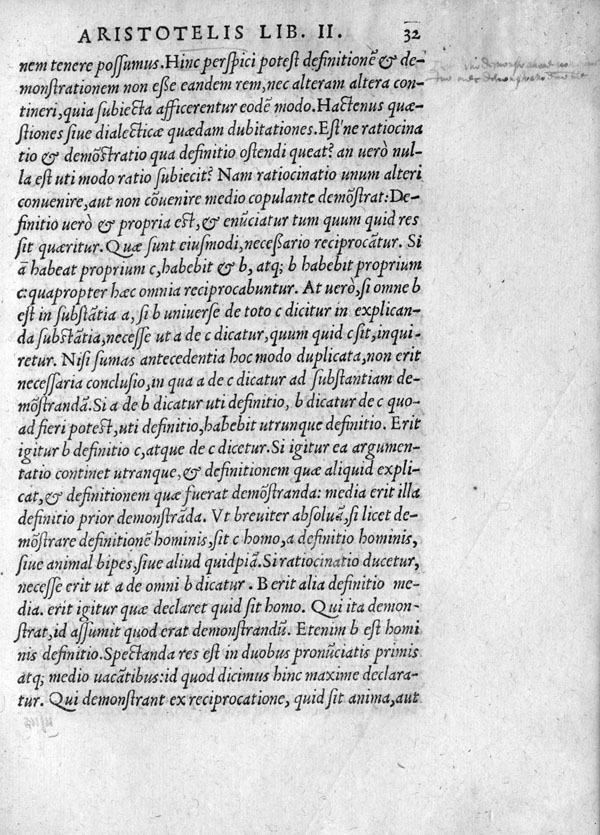 ARISTOTELIS LIB. II. 32
nem tenere possumus.Hinc perspici potest definitionē & de-
monstrationem non eße eandem rem,nec alteram altera con-
tineri,quia subiecta afficerentur eodē modo.Hactenus quæ-
stiones siue dialecticæ quædam dubitationes.Est'ne ratiocina
tio & demōstratio qua definitio ostendi queat? an uerò nul-
la est uti modo ratio subiecit? Nam ratiocinatio unum alteri
conuenire,aut non cōuenire medio copulante demōstrat:De-
finitio uerò & propria est,& enūciatur tum quum quid res
sit quæritur. Quæ sunt eiusmodi,neceßario reciprocātur. Si
ā habeat proprium c,habebit & b, atq; b habebit proprium
c:quapropter hæc omnia reciprocabuntur. At uerò,si omne b
est in substātia a, si b uniuerse de toto c dicitur in explican-
da substātia,necesse ut a de c dicatur,quum quid c sit,inqui-
retur. Nisi sumas antecedentia hoc modo duplicata,non erit
necessaria conclusio,in qua a de c dicatur ad substantiam de-
mōstrandā.Si a de b dicatur uti definitio, b dicatur de c quo-
ad fieri potest,uti definitio,habebit utrunque definitio. Erit
igitur b definitio c,atque de c dicetur.Si igitur ea argumen-
tatio continet utranque,& definitionem quæ aliquid expli-
cat,& definitionem quæ fuerat demōstranda: media erit illa
definitio prior demonstrāda. Vt breuiter absoluā,si licet de-
mōstrare definitionē hominis,sit c homo,a definitio hominis,
siue animal bipes,siue aliud quidpiā.Si ratiocinatio ducetur,
necesse erit ut a de omni b dicatur . B erit alia definitio me-
dia. erit igitur quæ declaret quid sit homo. Qui ita demon-
strat,id assumit quod erat demonstrandū. Etenim b est homi
nis definitio.Spectanda res est in duobus pronūciatis primis
atq; medio uacātibus:id quod dicimus hinc maxime declara-
tur. Qui demonstrant ex reciprocatione, quid sit anima,aut